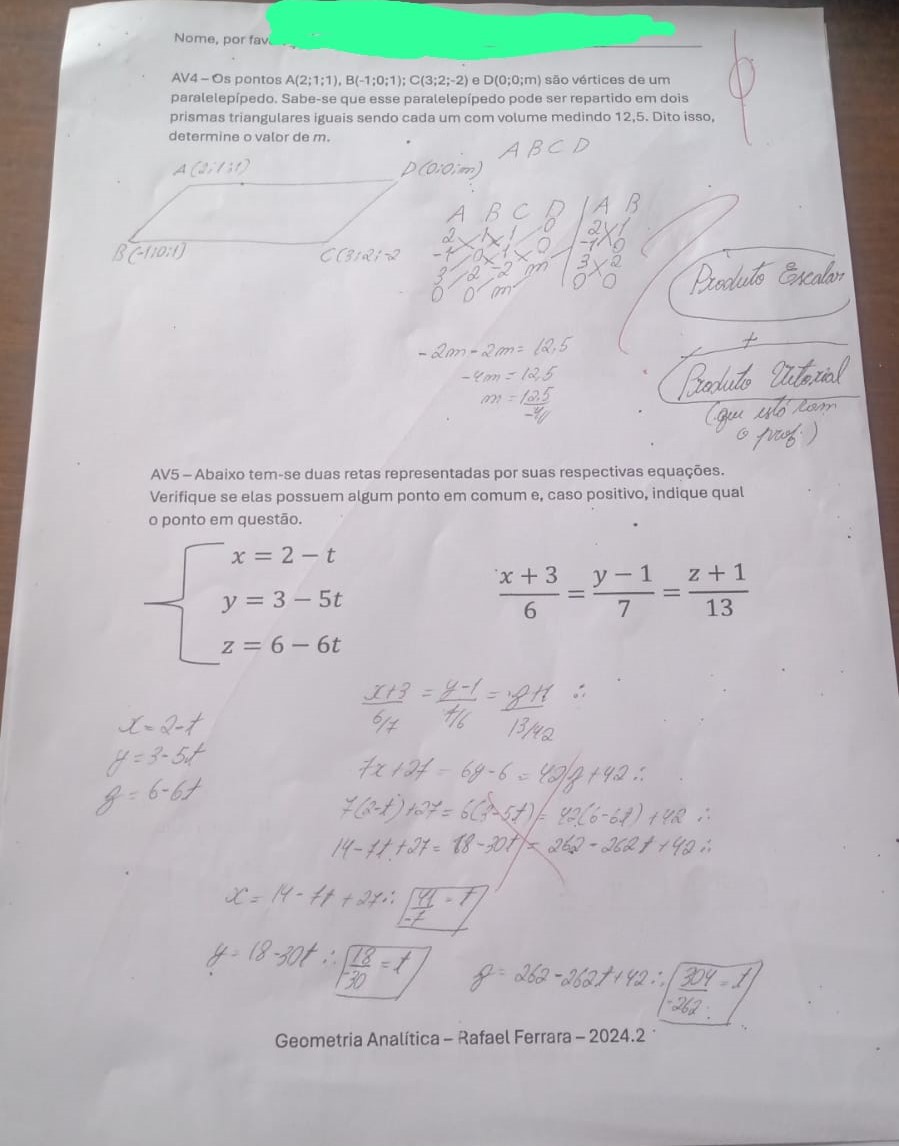 Nome, por fav
AV4 – Os pontos A(2;1;1), B(-1;0;1); C(3;2;-2) e D(0;0;m) são vértices de um
paralelepípedo. Sabe-se que esse paralelepípedo pode ser repartido em dois
prismas triangulares iguais sendo cada um com volume medindo 12,5. Dito isso,
determine o valor de m.
A B C D
A(2;1;1)
D(0;0;m)
B(-1;0;1)
C(3;2;-2
A B C D | A B
2 1 1 0 2 1
-1 0 1 0 -1 0
3 2 -2 m 3 2
0 0 m 0 0
Produto Escalar
+
Produto Vetorial
(que está com
o prof.)
-2m - 2m = 12,5
-4m = 12,5
m = 12,5
-4//
AV5 – Abaixo tem-se duas retas representadas por suas respectivas equações.
Verifique se elas possuem algum ponto em comum e, caso positivo, indique qual
o ponto em questão.
x = 2 − t
y = 3 − 5t
z = 6 − 6t
x + 3 = y − 1 = z + 1
6 7 13
x+3 = y-1 = z+1 ∴
6/7 7/6 13/42
x = 2-t
y = 3-5t
z = 6-6t
7x+27 = 6y-6 = 42z+42 ∴
7(2-t)+27 = 6(3-5t) = 42(6-6t)+42 ∴
14-7t+27 = 18-30t = 262-262t+42 ∴
x = 14-7t+27 ∴ 41 = t
-7
y = 18-30t ∴ 18 = t
-30
z = 262-262t+42 ∴ 304 = t
-262
Geometria Analítica – Rafael Ferrara – 2024.2